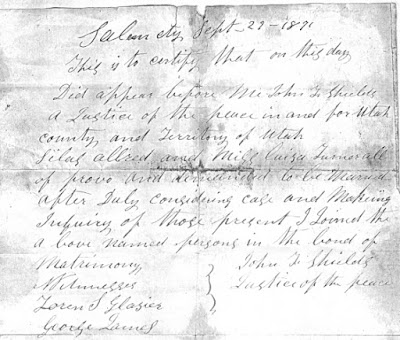 Salem city Sept-29-1891
This is to certify that on this day
Did appear before Me John F Shields
a Justice of the peace in and for Utah
county and Territory of Utah
Silas allred and Miss
of provo and demanded to be Married
after Duly considering case and Making
Inquiry of those present I Joined the
a bove named persons in the bond of
Matrimony
Witnesses
Loren S Glazier
George James
John F Shields
Justice of the peace